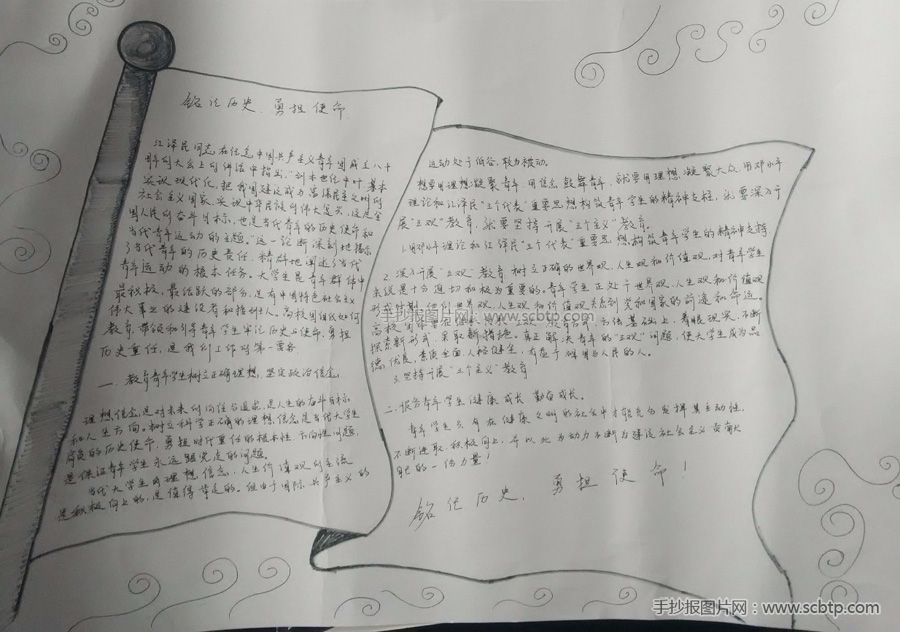 铭记历史、勇担使命
江泽民同志在纪念中国共产主义青年团成立八十
周年的大会上的讲话中指出,“到本世纪中叶基本
实现现代化,把我国建设成为富强民主文明的
社会主义国家,实现中华民族的伟大复兴,这是全
国人民的奋斗目标,也是当代青年的历史使命和
当代青年运动的主题。”这一论断深刻地揭示
了当代青年的历史责任,精辟地阐述了当代
青年运动的根本任务。大学生是青年群体中
最积极,最活跃的部分,是有中国特色社会主义
伟大事业的建设者和接班人。高校团组织如何
教育、带领和引导青年学生牢记历史使命,勇担
历史重任,是我们工作的第一要务
一、教育青年学生树立正确理想,坚定政治信念,
理想信念,是对未来的向往与追求,是人生的奋斗目标
和人生方向。树立科学正确的理想信念是当代大学生
肩负的历史使命,勇担时代重任的根本性、方向性问题,
是保证青年学生永远跟党走的问题。
当代大学生的理想信念,人生价值观的主流
是积极向上的,是值得肯定的。但由于国际共产主义的
运动处于低谷,较为被动。
想要用理想凝聚青年,用信念鼓舞青年,就要用理想凝聚大众,用邓小平
理论和江泽民“三个代表”重要思想构筑青年学生的精神支柱,就要深入开
展“三观”教育,就要坚持开展“三个主义”教育。
1.用邓小平理论和江泽民“三个代表”重要思想构筑青年学生的精神支柱
2.深入开展“三观”教育 树立正确的世界观,人生观和价值观,对青年学生
来说是十分迫切和极为重要的,青年学生正处于世界观、人生观和价值观
形成时期,他们世界观、人生观和价值观关系到党和国家的前途和命运。
高校团 教育 基础上,着眼现实,不断
探索新形式,采取新措施。真正解决青年的“三观”问题,使大学生成为品
德优良,素质全面,人格健全,有益于祖国和人民的人。
3.坚持开展“三个主义”教育
二、服务青年学生健康成长、勤奋成长。
青年学生只有在健康文明的社会中才能充分发挥其主动性,
不断进取,积极向上,并以此为动力不断为建设社会主义贡献
自己的一份力量!
铭记历史,勇担使命!
手抄报图片网 www.scbtp.com
手抄报图片网:www.scbtp.com